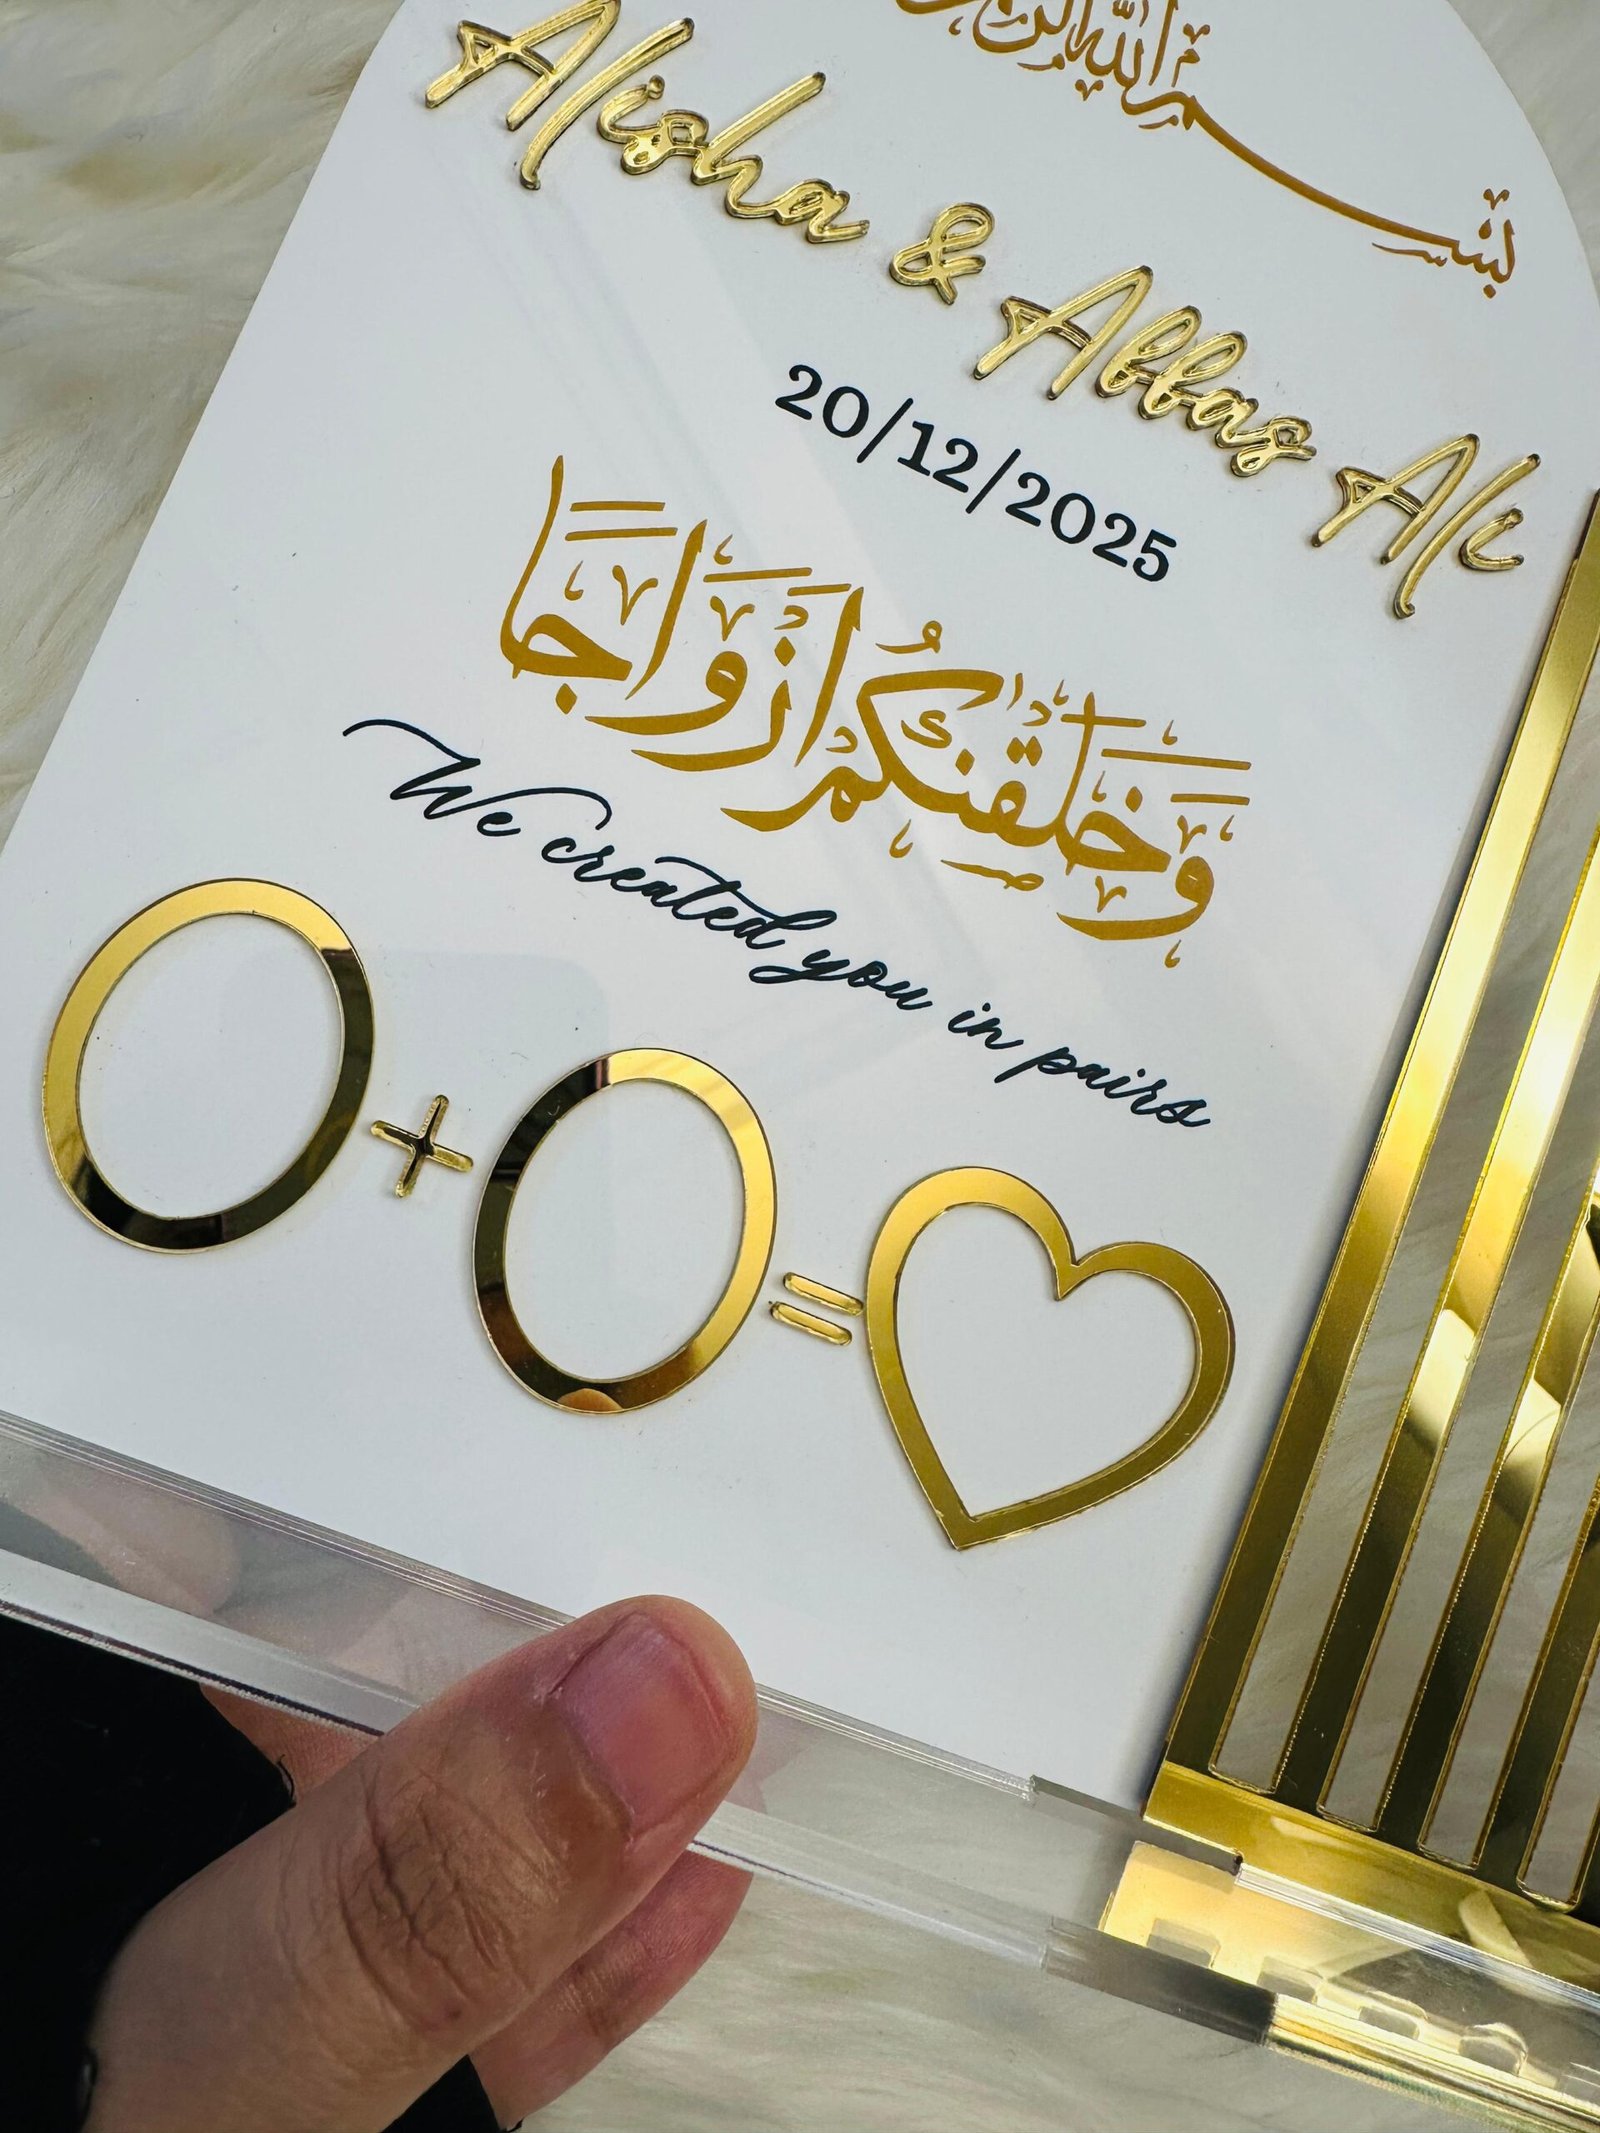 بِسْمِ اللهِ
Alisha & Abbas Ali
20/12/2025
وَخَلَقْنٰكُمْ اَزْوَاجًا
We created you in pairs
+ =